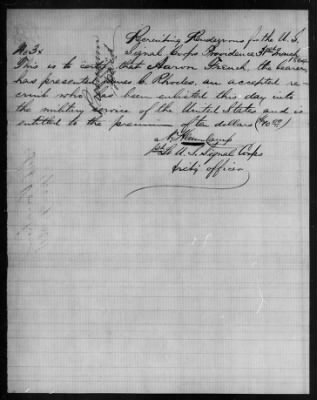 Recruiting Rendezvous for the U.S.
No. 3 Signal Corps Providence
This is to certify that Aaron French, the bearer
has presented James C. Rhodes, an accepted re-
cruit who has been enlisted this day into
the military service of the United States and is
entitled to the premium of ten dollars ($10 00/)
U.S. Signal Corps
Recty officer